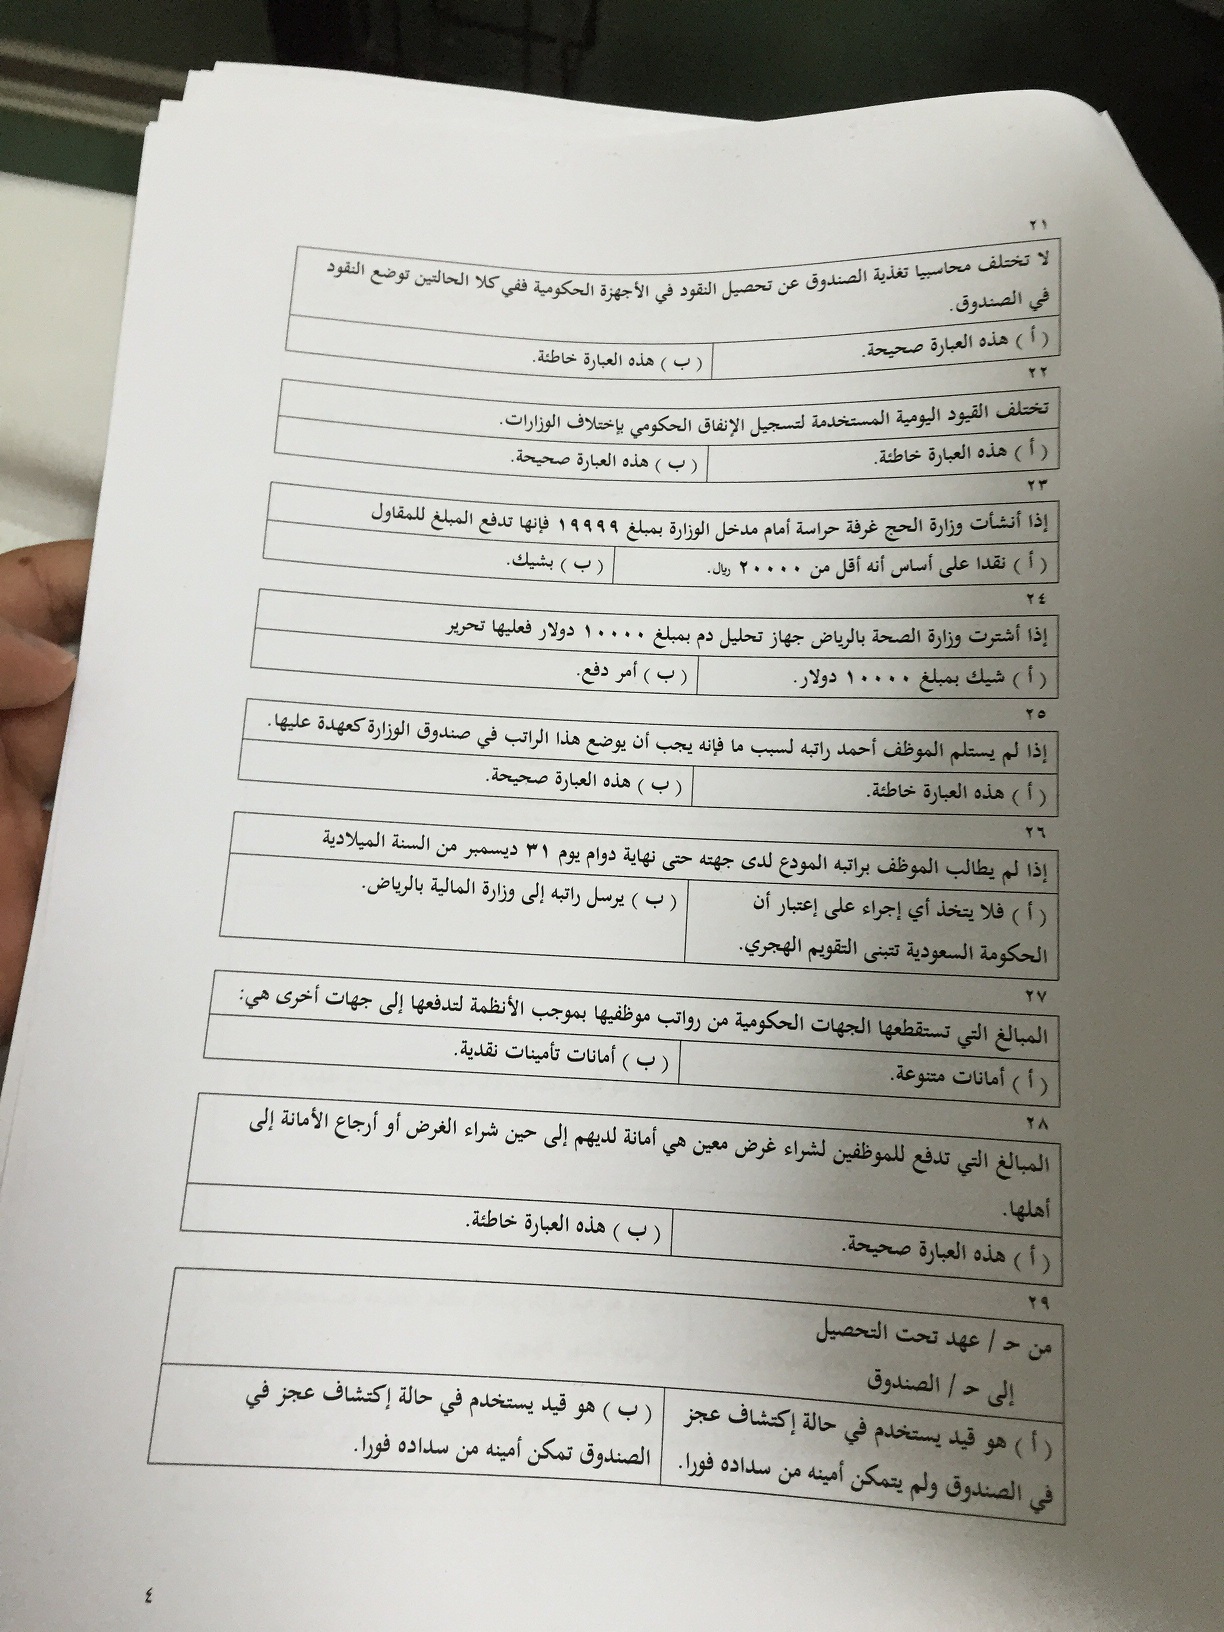 ٢١
لا تختلف محاسبيا تغذية الصندوق عن تحصيل النقود في الأجهزة الحكومية ففي كلا الحالتين توضع النقود
في الصندوق.
( أ ) هذه العبارة صحيحة.
( ب ) هذه العبارة خاطئة.
٢٢
تختلف القيود اليومية المستخدمة لتسجيل الإنفاق الحكومي بإختلاف الوزارات.
( أ ) هذه العبارة خاطئة.
( ب ) هذه العبارة صحيحة.
٢٣
إذا أنشأت وزارة الحج غرفة حراسة أمام مدخل الوزارة بمبلغ ١٩٩٩٩ فإنها تدفع المبلغ للمقاول
( أ ) نقدا على أساس أنه أقل من ٢٠٠٠٠ ريال.
( ب ) بشيك.
٢٤
إذا أشترت وزارة الصحة بالرياض جهاز تحليل دم بمبلغ ١٠٠٠٠ دولار فعليها تحرير
( أ ) شيك بمبلغ ١٠٠٠٠ دولار.
( ب ) أمر دفع.
٢٥
إذا لم يستلم الموظف أحمد راتبه لسبب ما فإنه يجب أن يوضع هذا الراتب في صندوق الوزارة كعهدة عليها.
( أ ) هذه العبارة خاطئة.
( ب ) هذه العبارة صحيحة.
٢٦
إذا لم يطالب الموظف براتبه المودع لدى جهته حتى نهاية دوام يوم ٣١ ديسمبر من السنة الميلادية
( أ ) فلا يتخذ أي إجراء على إعتبار أن
الحكومة السعودية تتبنى التقويم الهجري.
( ب ) يرسل راتبه إلى وزارة المالية بالرياض.
٢٧
المبالغ التي تستقطعها الجهات الحكومية من رواتب موظفيها بموجب الأنظمة لتدفعها إلى جهات أخرى هي:
( أ ) أمانات متنوعة.
( ب ) أمانات تأمينات نقدية.
٢٨
المبالغ التي تدفع للموظفين لشراء غرض معين هي أمانة لديهم إلى حين شراء الغرض أو أرجاع الأمانة إلى
أهلها.
( أ ) هذه العبارة صحيحة.
( ب ) هذه العبارة خاطئة.
٢٩
من حـ / عهد تحت التحصيل
إلى حـ / الصندوق
( أ ) هو قيد يستخدم في حالة إكتشاف عجز
في الصندوق ولم يتمكن أمينه من سداده فورا.
( ب ) هو قيد يستخدم في حالة إكتشاف عجز في
الصندوق تمكن أمينه من سداده فورا.
٤